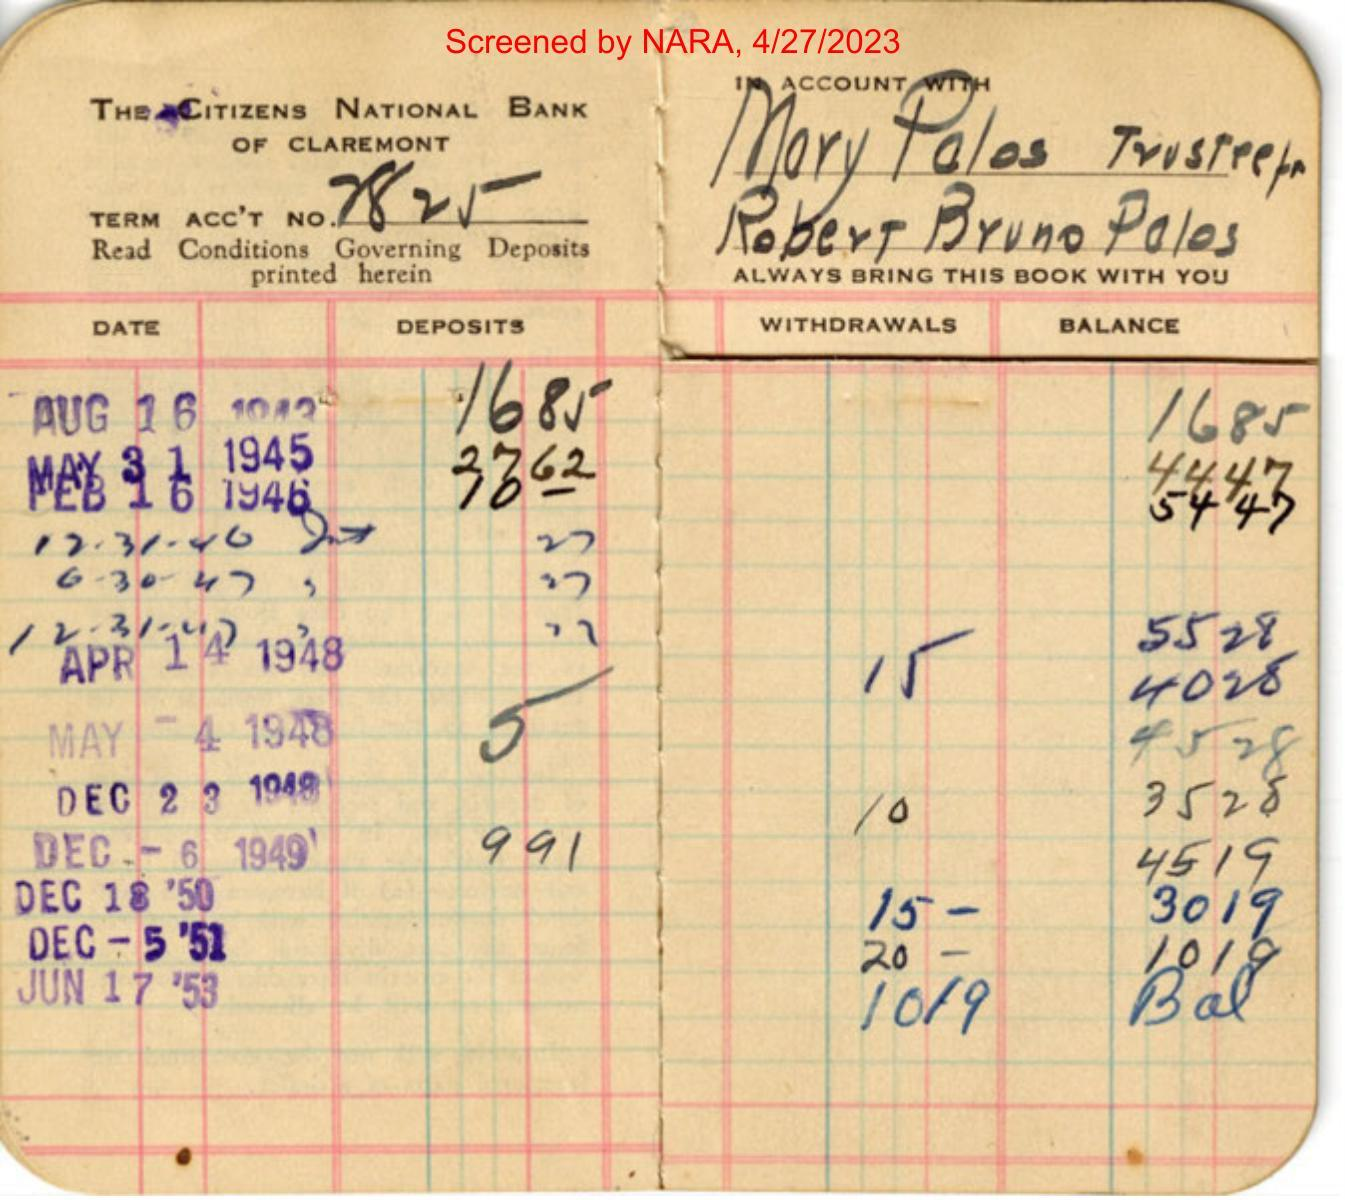 Screened by NARA, 4/27/2023
THE CITIZENS NATIONAL BANK
OF CLAREMONT
TERM ACC'T NO. 7825
Read Conditions Governing Deposits
printed herein
IN ACCOUNT WITH
Mary Palos Trustee for
Robert Bruno Palos
ALWAYS BRING THIS BOOK WITH YOU
DATE DEPOSITS WITHDRAWALS BALANCE
AUG 16 1943 16 85 16 85
MAY 31 1945 27 62 44 47
FEB 16 1946 10 — 54 47
12-31-46 Int 27
6-30-47 " 27
12-31-47 " 27 55 28
APR 14 1948 15 — 40 28
MAY - 4 1948 5 — 45 28
DEC 23 1948 10 35 28
DEC - 6 1949 9 91 45 19
DEC 18 '50 15 — 30 19
DEC - 5 '51 20 — 10 19
JUN 17 '53 10 19 Bal